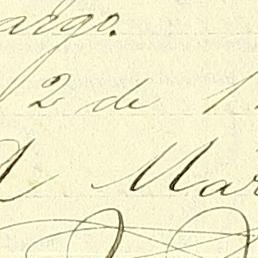 argo.
2 de 1
Mar